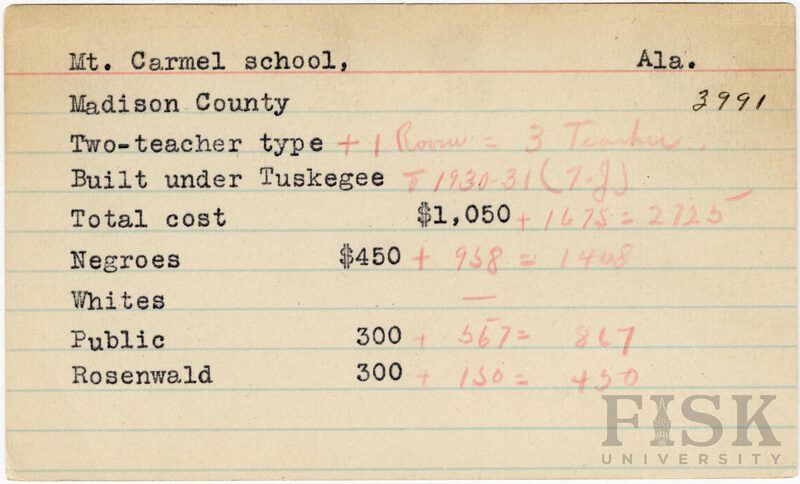 Mt. Carmel school, Ala.
Madison County 3991
Two-teacher type + 1 Room = 3 Teacher.
Built under Tuskegee + 1930-31 (7-J)
Total cost $1,050 + 1675 = 2725
Negroes $450 + 958 = 1408
Whites —
Public 300 + 567 = 867
Rosenwald 300 + 150 = 450
FISK
UNIVERSITY